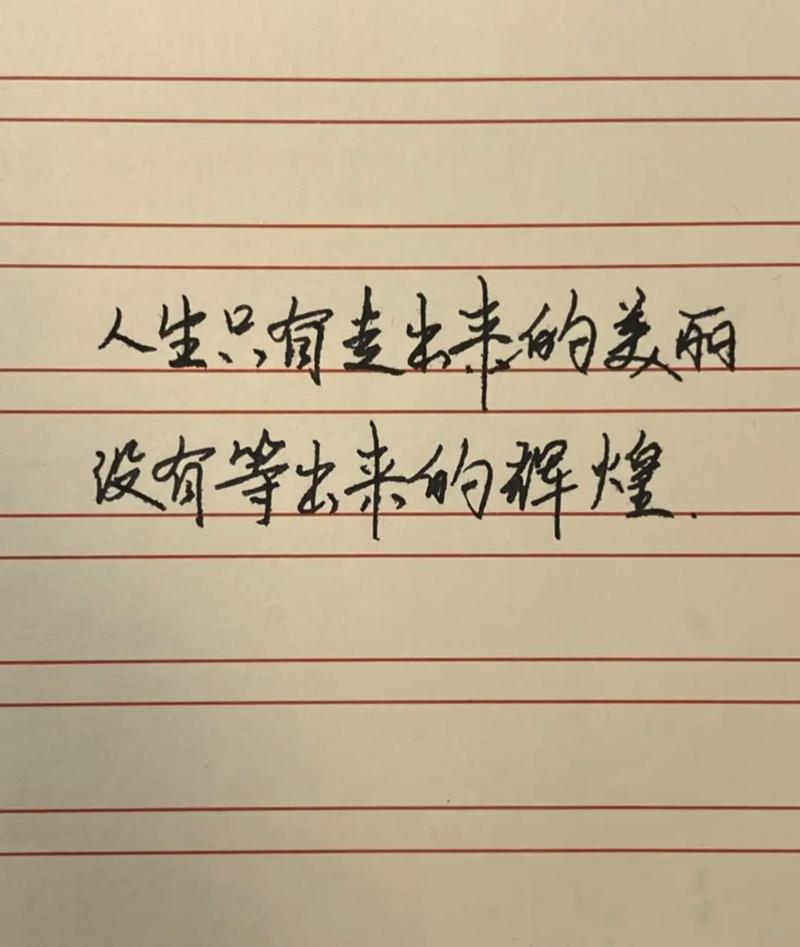 人生只有走出来的美丽
没有等出来的辉煌.